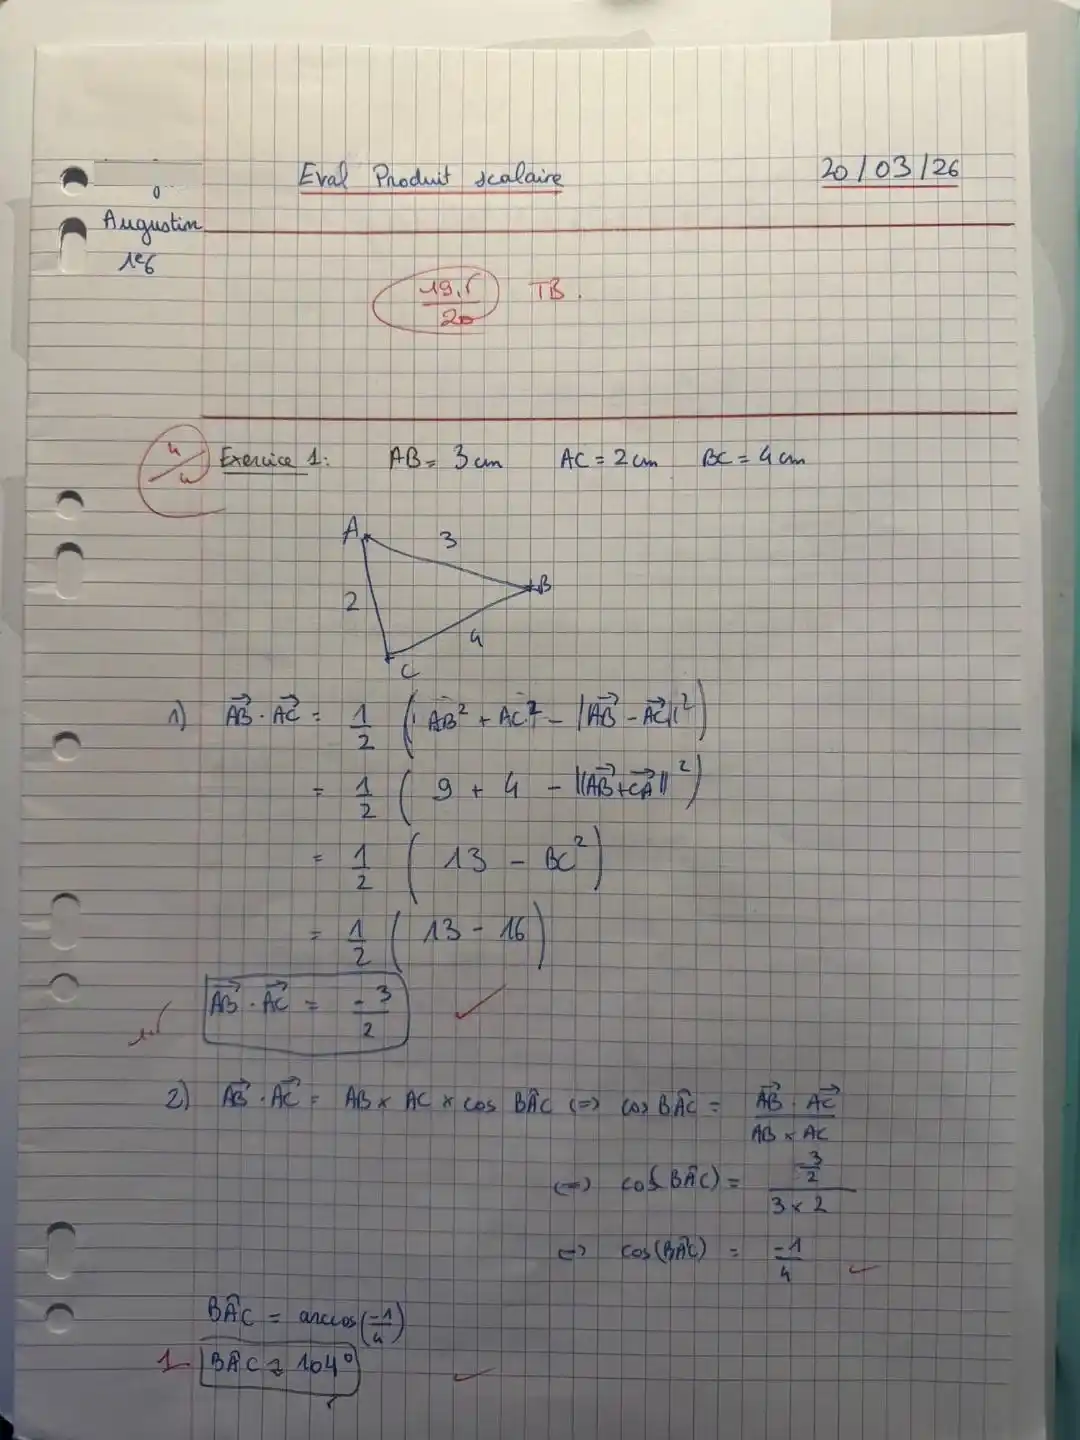 Eval Produit scalaire 20/03/26
Augustin
1e6
19,5/20 TB.
4/4 Exercice 1: AB = 3cm AC = 2cm BC = 4cm
A 3
B
2
4
C
1) AB→ · AC→ = 1/2 (AB² + AC² - ||AB→ - AC→||²)
= 1/2 (9 + 4 - ||AB→ + CA→||²)
= 1/2 (13 - BC²)
= 1/2 (13 - 16)
AB→ · AC→ = -3/2
2) AB→ · AC→ = AB × AC × cos BÂC <=> cos BÂC = AB→ · AC→ / AB × AC
<=> cos(BÂC) = -3/2 / 3 × 2
<=> cos(BÂC) = -1/4
BÂC = arccos(-1/4)
1 BÂC ≈ 104°